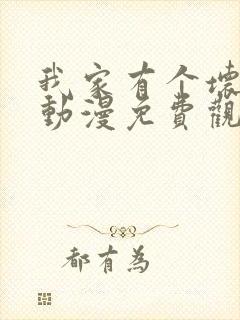 我家有个壞
動漫免費觀
都有為